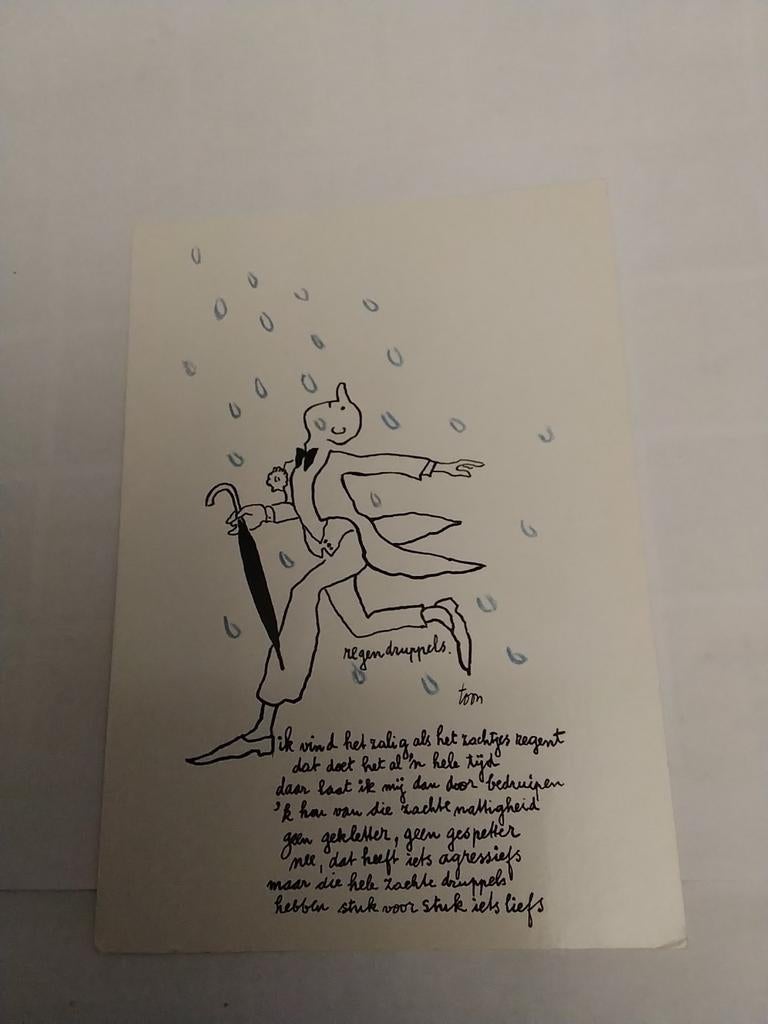 regendruppels.
toon
ik vind het zalig als het zachtjes regent
dat doet het al 'n hele tijd
daar laat ik mij dan door bedruipen
'k hou van die zachte nattigheid
geen gekletter, geen gespetter
nee, dat heeft iets agressiefs
maar die hele zachte druppels
hebben stuk voor stuk iets liefs